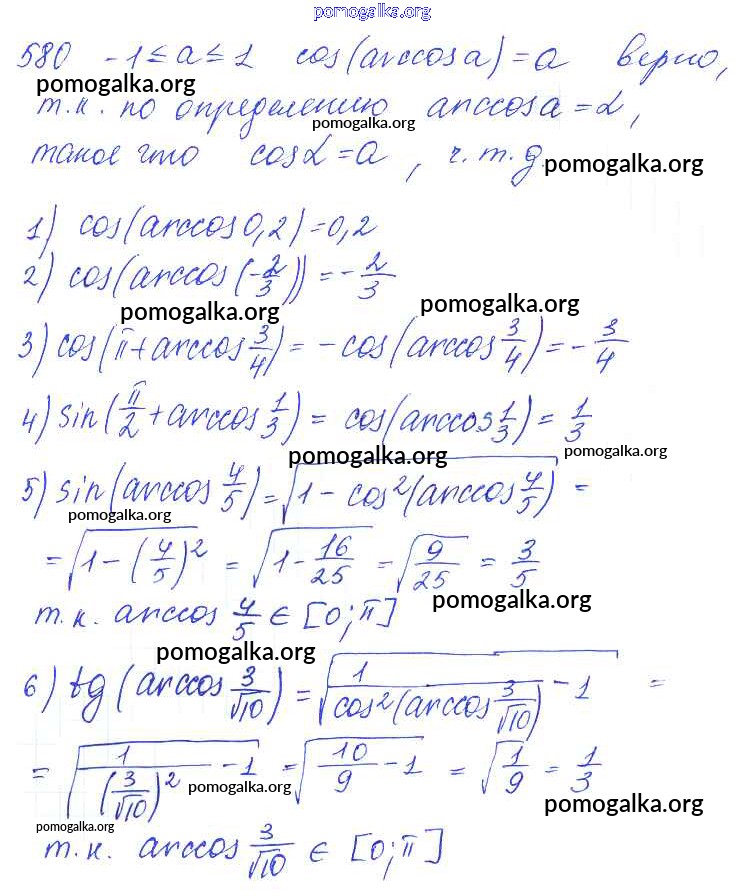 pomogalka.org
580 -1 ≤ a ≤ 1 cos(arccos a) = a верно,
pomogalka.org
т.к. по определению arccos a = α,
pomogalka.org
такое что cos α = a, ч.т.д.
pomogalka.org
1) cos(arccos 0,2) = 0,2
2) cos(arccos(-2/3)) = -2/3
pomogalka.org
pomogalka.org
3) cos(π + arccos 3/4) = -cos(arccos 3/4) = -3/4
4) sin(π/2 + arccos 1/3) = cos(arccos 1/3) = 1/3
pomogalka.org
pomogalka.org
5) sin(arccos 4/5) = √(1 - cos²(arccos 4/5)) =
pomogalka.org
= √(1 - (4/5)²) = √(1 - 16/25) = √(9/25) = 3/5
т.к. arccos 4/5 ∈ [0; π]
pomogalka.org
pomogalka.org
6) tg(arccos 3/√10) = √(1/cos²(arccos 3/√10) - 1) =
= √(1/(3/√10)² - 1) = √(10/9 - 1) = √(1/9) = 1/3
pomogalka.org
pomogalka.org
pomogalka.org
т.к. arccos 3/√10 ∈ [0; π]